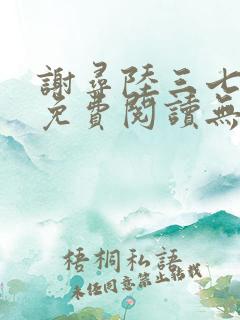 謝尋陸三七
免費閱讀無
梧桐私語
未经同意禁止转载